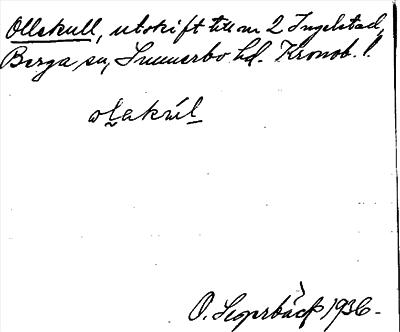 Ollskull, utskift till nr 2 Ingelstad,
Berga sn, Sunnerbo hd. Kronob. l.
olakúl
O. Segerbäck 1936.